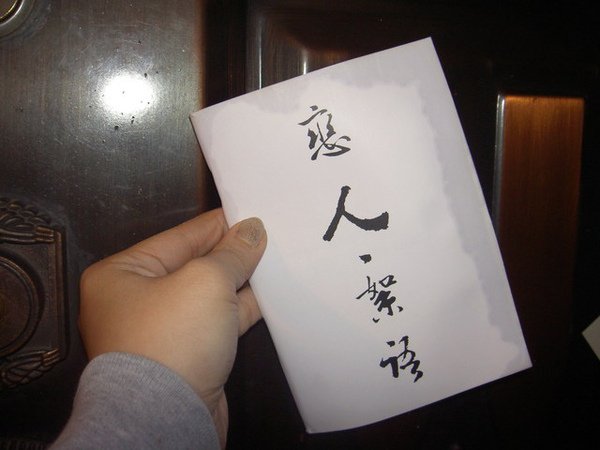 戀人‧絮語